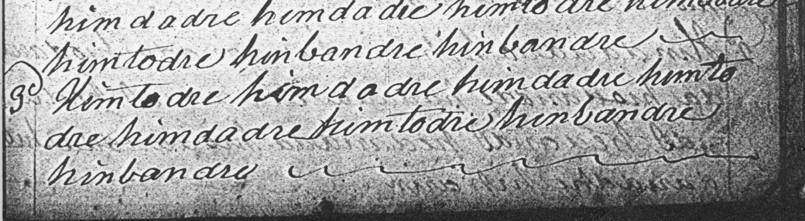 himdadre himdadre himtodre himtodre
himtodre hinbandre hinbandre
3d Himtodre himdadre himdadre himto
dre himdadre himtodre hinbandre
hinbandre